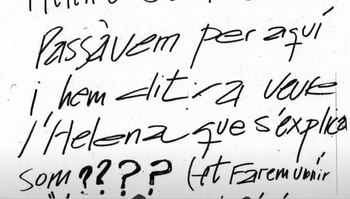 Passàvem per aquí
i hem dit: a veure
l'Helena que s'explica
som???? (et farem venir